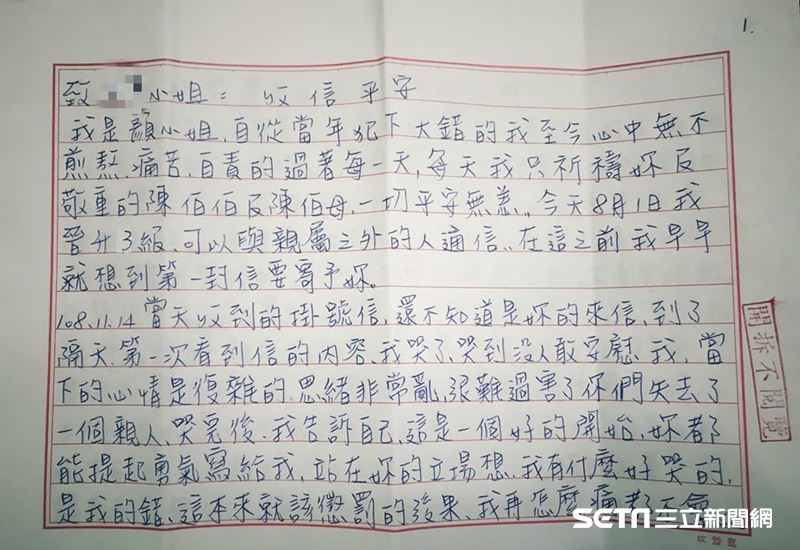 1.
致 小姐：收信平安
我是顏小姐，自從當年犯下大錯的我至今心中無不
煎熬、痛苦、自責的過著每一天，每天我只祈禱妳及
敬重的陳伯伯及陳伯母，一切平安無恙，今天8月1日我
晉升3級、可以與親屬之外的人通信，在這之前我早早
就想到第一封信要寄予妳。
108.11.14當天收到的掛號信，還不知道是妳的來信，到了
隔天、第一次看到信的內容，我哭了、哭到沒人敢安慰我，當
下的心情是復雜的、思緒非常亂，很難過害了你們失去了
一個親人、哭完後、我告訴自己，這是一個好的開始，妳都
能提起勇氣寫給我，站在妳的立場想、我有什麼好哭的，
是我的錯、這本來就該懲罰的後果、我再怎麼痛都不會
開拆不閱覽
SETN 三立新聞網